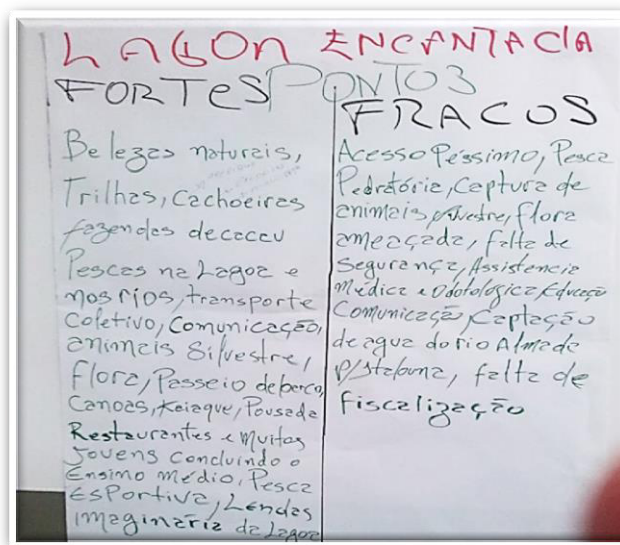 LAGOA ENCANTADA
PONTOS
FORTES
Belezas naturais,
Trilhas, Cachoeiras
fazendas de cacau
Pescas na Lagoa e
nos rios, transporte
Coletivo, Comunicação,
animais Silvestre,
flora, Passeio de barco,
Canoas, Kaiaque, Pousada
Restaurantes e muitos
Jovens concluindo o
Ensino médio, Pesca
Esportiva, Lendas
imaginária da Lagoa
FRACOS
Acesso Péssimo, Pesca
Pedratória, Captura de
animais silvestre, flora
ameaçada, falta de
Segurança, Assistencia
Médica e Odotológica, Educação
Comunicação, Captação
de agua do rio Almada
p/ Itabuna, falta de
fiscalização